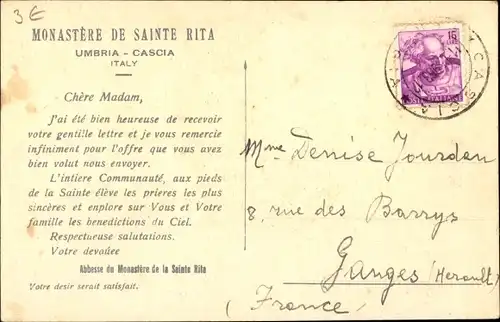 3€
MONASTÈRE DE SAINTE RITA
UMBRIA - CASCIA
ITALY
Chère Madam,
J'ai été bien heureuse de recevoir
votre gentille lettre et je vous remercie
infiniment pour l'offre que vous avez
bien volut nous envoyer.
L'intiere Communauté, aux pieds
de la Sainte élève les prieres les plus
sincères et enplore sur Vous et Votre
famille les benedictions du Ciel.
Respectueuse salutations.
Votre devouée
Abbesse du Monastère de la Sainte Rita
Votre desir serait satisfait.
15
CASCIA
Mme Denise Jourdan
8, rue des Barrys
Ganges (Herault)
(France)